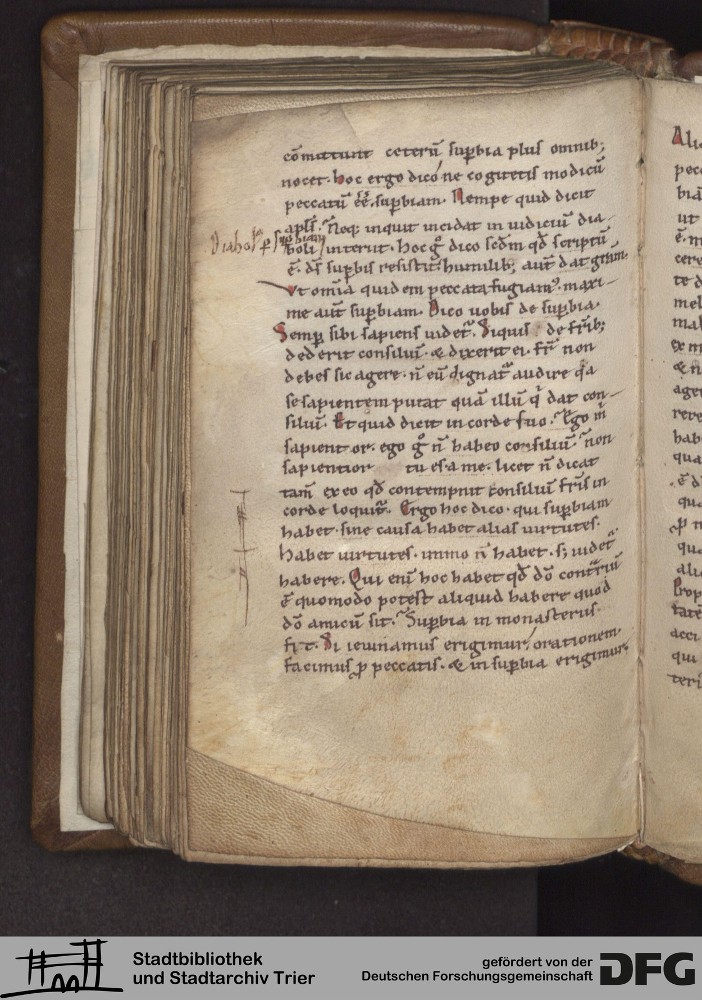 cōmittunt ceterū supbia plus omnib;
nocet. hoc ergo dico ne cogitetis modicū
peccatū ēē. supbiam. Nempe quid dicit
apl's. Neq; inquit incidat in iudiciū dia
boli interiit. hoc g° dico scdm qd scriptū
ē. ds supbis resistit humilib; aut dat gram.
Vt omia quidem peccata fugiam'. maxi
me aut supbiam. Dico uobis de supbia.
Semp sibi sapiens uidet'. Siquis de frib;
dederit consiliū. & dixerit ei. fr non
debes sic agere. n eū dignat' audire qa
se sapientem putat quā illū q dat con
siliū. Et quid dicit in corde suo. Ego
sapientior. ego g° n habeo consiliū non
sapientior tu es a me. licet n dicat
tam ex eo qd contempnit consiliū fris in
corde loquit'. Ergo hoc dico. qui supbiam
habet. sine causa habet alias uirtutes.
Habet uirtutes. immo n habet. s; uidet'
habere. Qui eni hoc habet qd dō contriū
ē quomodo potest aliquid habere quod
dō amicū sit. Supbia in monasteriis
fit. Si ieiunamus erigimur. orationem
facimus p peccatis. & in supbia erigimur.
Stadtbibliothek
und Stadtarchiv Trier
gefördert von der
Deutschen Forschungsgemeinschaft
DFG